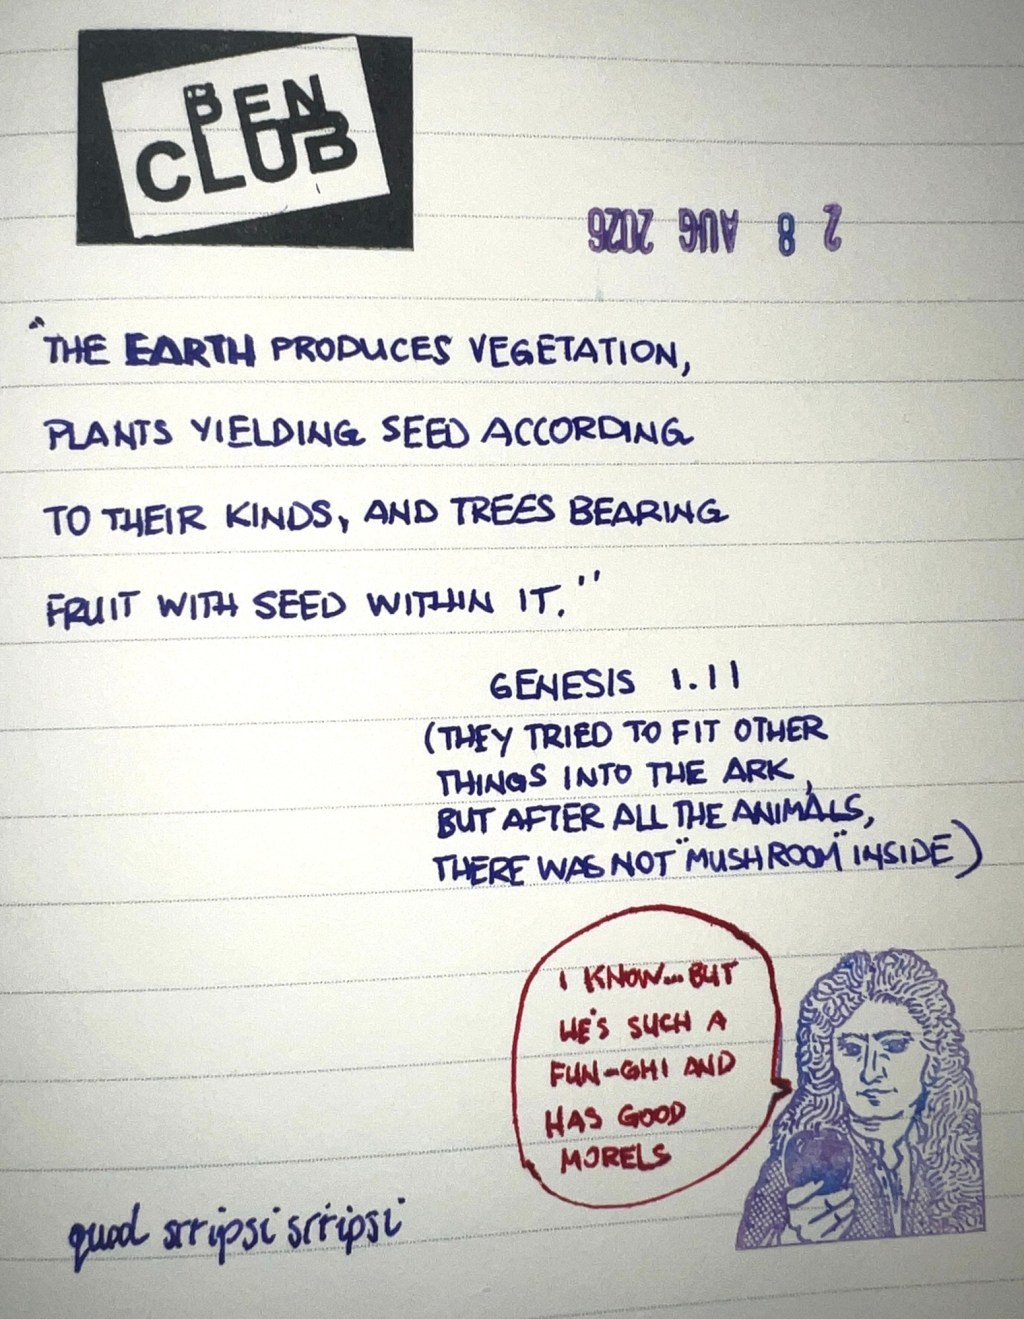 BEN
CLUB
28 AUG 2026
"THE EARTH PRODUCES VEGETATION,
PLANTS YIELDING SEED ACCORDING
TO THEIR KINDS, AND TREES BEARING
FRUIT WITH SEED WITHIN IT."
GENESIS 1.11
(THEY TRIED TO FIT OTHER
THINGS INTO THE ARK,
BUT AFTER ALL THE ANIMALS,
THERE WAS NOT "MUSHROOM" INSIDE)
I KNOW... BUT
HE'S SUCH A
FUN-GHI AND
HAS GOOD
MORELS
quod scripsi scripsi